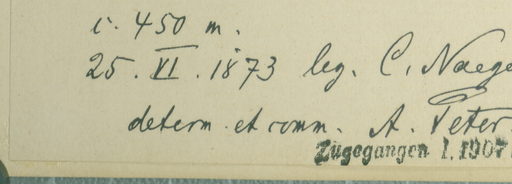 c. 450 m.
25. VI. 1873 leg. C. Naege
determ. et comm. A. Peter.
Zugegangen I. 1907